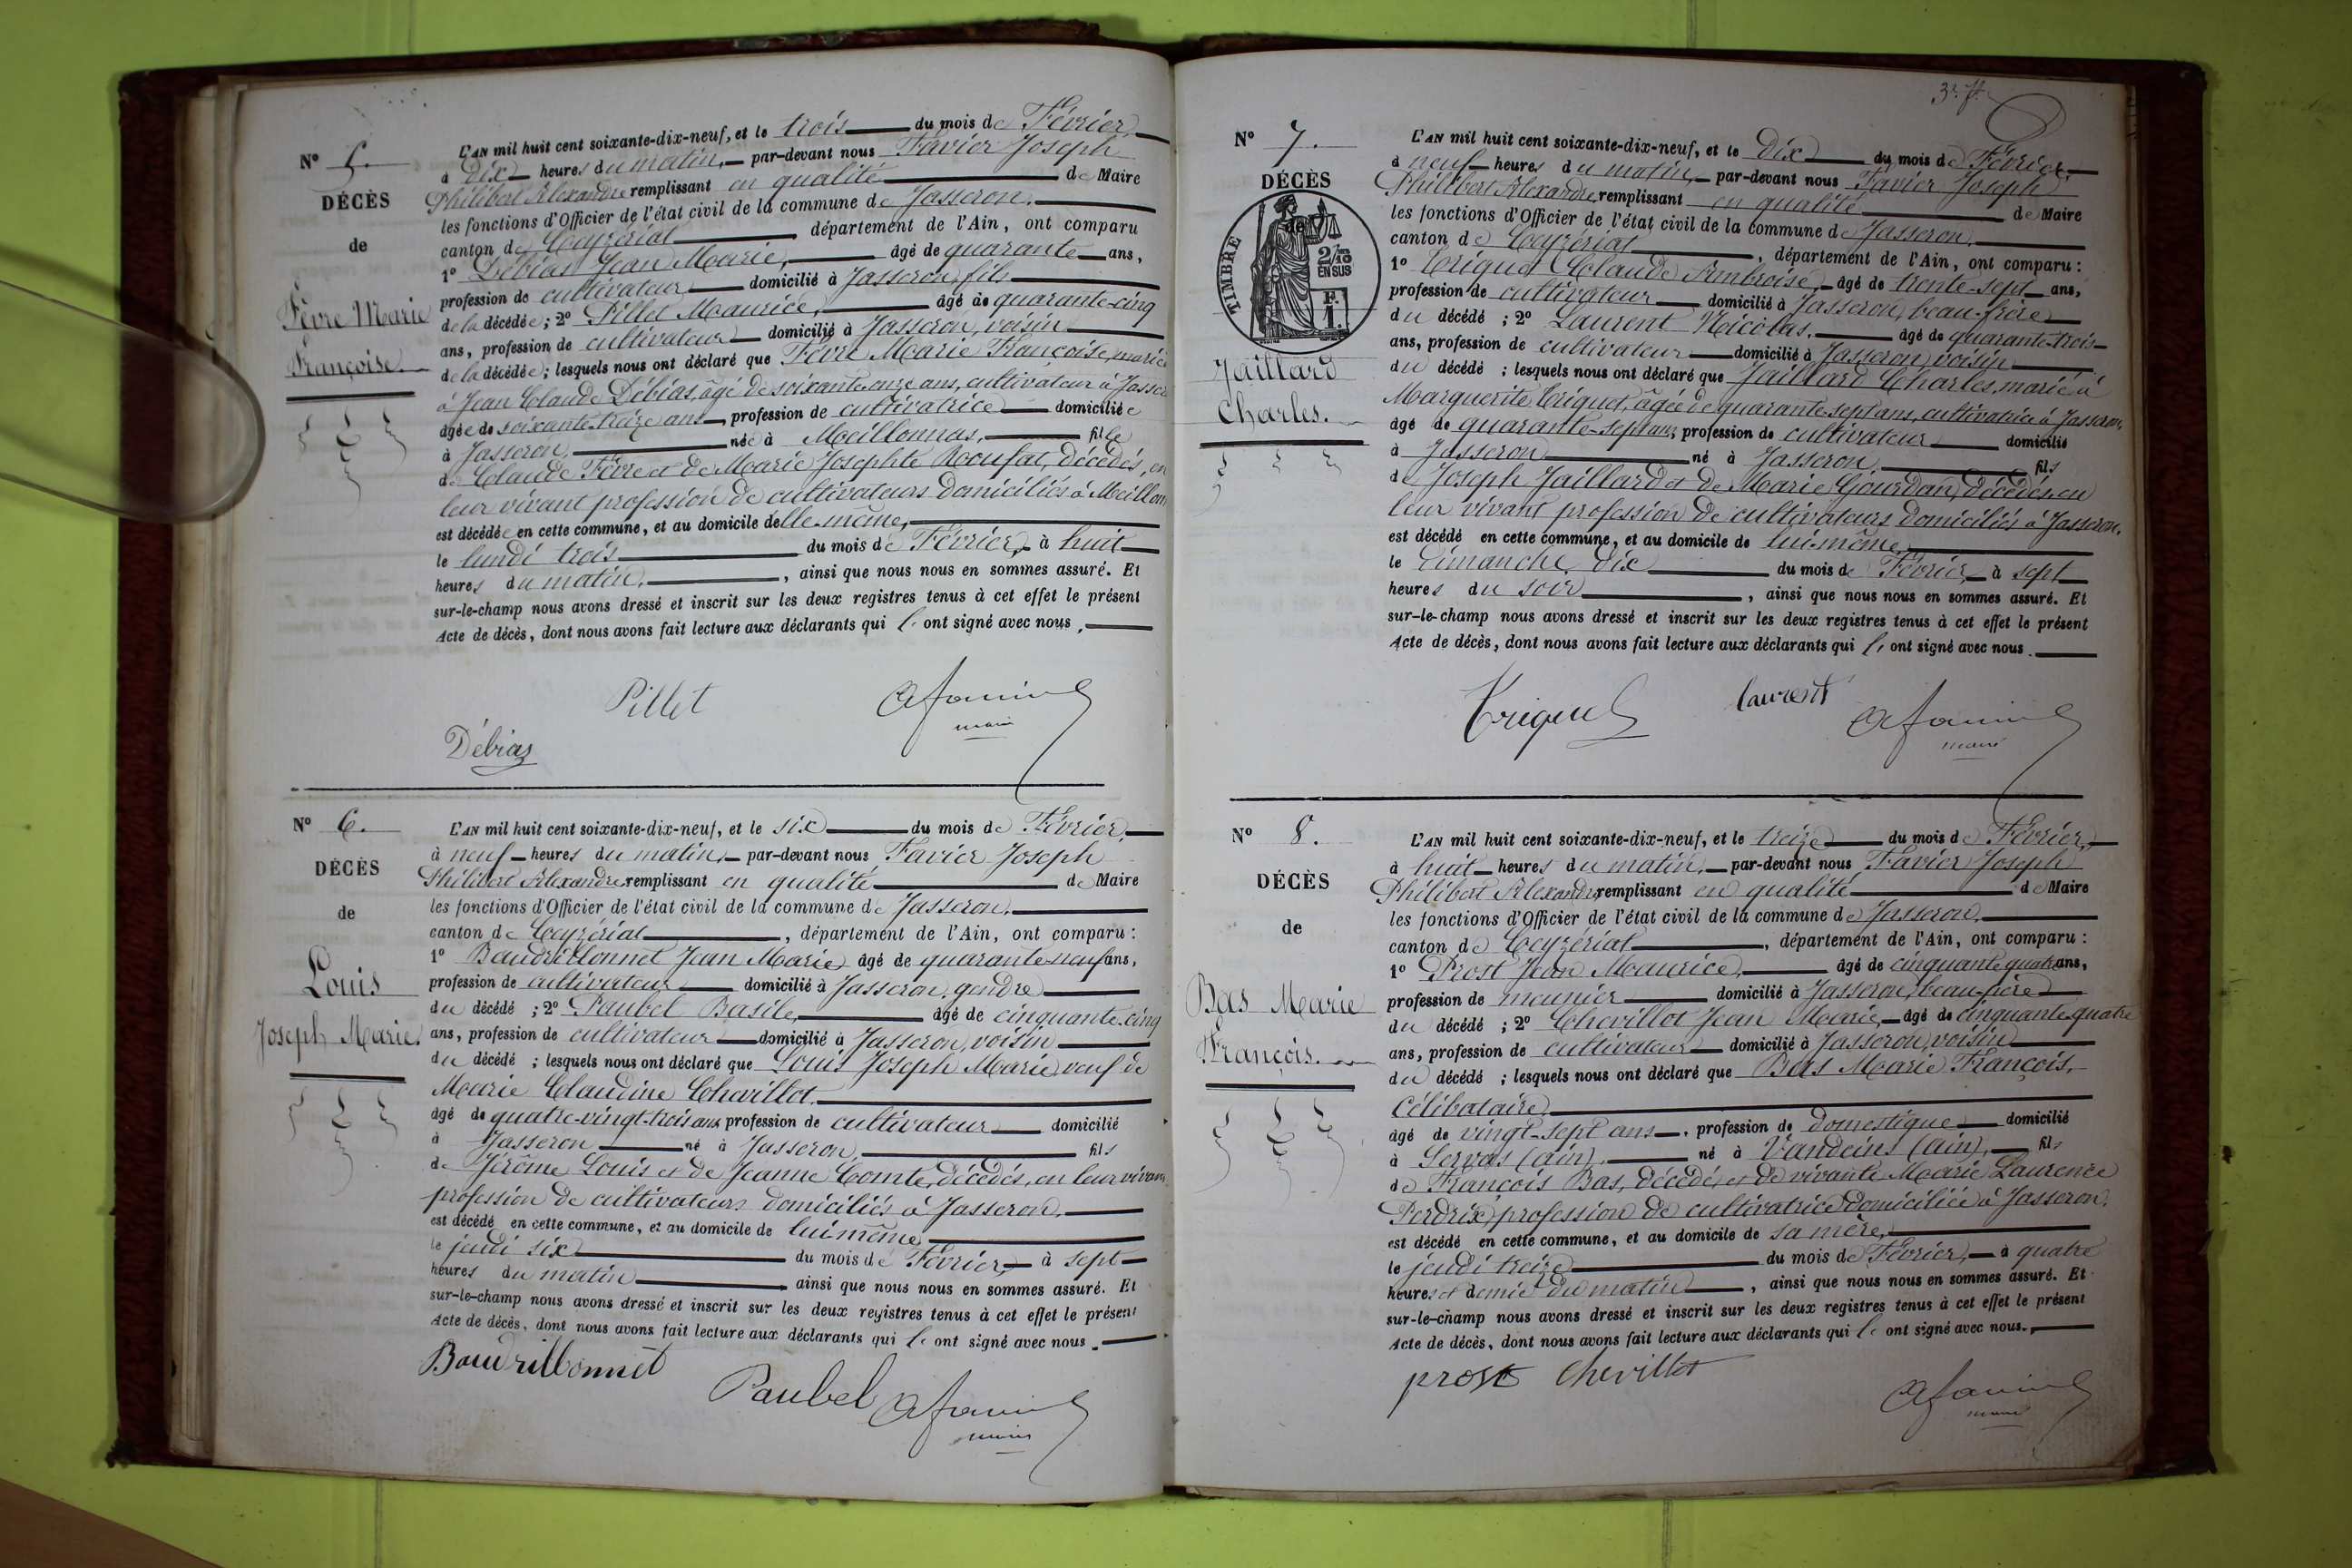 N° 5.
DÉCÈS
de
Fèvre Marie
Françoise.
L'AN mil huit cent soixante-dix-neuf, et le trois du mois de Février,
à dix heures du matin, par-devant nous Favier Joseph
Philibert Alexandre remplissant en qualité de Maire
les fonctions d'Officier de l'état civil de la commune de Jasseron,
canton de Ceyzériat département de l'Ain, ont comparu
1° Débias Jean Marie, âgé de quarante ans,
profession de cultivateur domicilié à Jasseron, fils
de la décédée; 2° Pillet Maurice, âgé de quarante-cinq
ans, profession de cultivateur domicilié à Jasseron, voisin
de la décédée; lesquels nous ont déclaré que Fèvre Marie Françoise, mariée
à Jean Claude Débias, âgé de soixante-onze ans, cultivateur à Jasser
âgée de soixante-treize ans, profession de cultivatrice domiciliée
à Jasseron, née à Meillonnas, fille
de Claude Fèvre et de Marie Josephte Roufat, décédés, en
leur vivant profession de cultivateurs domiciliés à Meillon
est décédée en cette commune, et au domicile d'elle-même,
le lundi trois du mois de Février, à huit
heures du matin, ainsi que nous nous en sommes assuré. Et
sur-le-champ nous avons dressé et inscrit sur les deux registres tenus à cet effet le présent
Acte de décès, dont nous avons fait lecture aux déclarants qui l' ont signé avec nous.
Pillet
Débias
maire
N° 6.
DÉCÈS
de
Louis
Joseph Marie.
L'AN mil huit cent soixante-dix-neuf, et le six du mois de Février,
à neuf heures du matin, par-devant nous Favier Joseph
Philibert Alexandre remplissant en qualité de Maire
les fonctions d'Officier de l'état civil de la commune de Jasseron,
canton de Ceyzériat, département de l'Ain, ont comparu :
1° Baudrillonnet Jean Marie, âgé de quarante-neuf ans,
profession de cultivateur domicilié à Jasseron, gendre
du décédé ; 2° Paubel Basile, âgé de cinquante-cinq
ans, profession de cultivateur domicilié à Jasseron, voisin
du décédé ; lesquels nous ont déclaré que Louis Joseph Marie, veuf de
Marie Claudine Chevillot,
âgé de quatre-vingt-trois ans profession de cultivateur domicilié
à Jasseron né à Jasseron, fils
de Jérôme Louis et de Jeanne Comte, décédés, en leur vivant
profession de cultivateurs domiciliés à Jasseron,
est décédé en cette commune, et au domicile de lui-même,
le jeudi six du mois de Février, à sept
heures du matin ainsi que nous nous en sommes assuré. Et
sur-le-champ nous avons dressé et inscrit sur les deux registres tenus à cet effet le présent
Acte de décès, dont nous avons fait lecture aux déclarants qui l' ont signé avec nous.
Baudrillonnet
Paubel
maire
3e. f.
N° 7.
DÉCÈS
de
TIMBRE
2/10 EN SUS
F. 1.
Jaillard
Charles.
L'AN mil huit cent soixante-dix-neuf, et le Dix du mois de Février,
à neuf heures du matin, par-devant nous Favier Joseph
Philibert Alexandre, remplissant en qualité de Maire
les fonctions d'Officier de l'état civil de la commune de Jasseron,
canton de Ceyzériat, département de l'Ain, ont comparu :
1° Triquet Claude Ambroise, âgé de trente-sept ans,
profession de cultivateur domicilié à Jasseron, beau-frère
du décédé ; 2° Laurent Nicolas, âgé de quarante-trois
ans, profession de cultivateur domicilié à Jasseron, voisin
du décédé ; lesquels nous ont déclaré que Jaillard Charles, marié à
Marguerite Triquet, âgée de quarante-sept ans, cultivatrice à Jasseron,
âgé de quarante-sept ans, profession de cultivateur domicilié
à Jasseron né à Jasseron, fils
de Joseph Jaillard et de Marie Gourdan, décédés, en
leur vivant profession de cultivateurs domiciliés à Jasseron,
est décédé en cette commune, et au domicile de lui-même,
le dimanche dix du mois de Février, à sept
heures du soir, ainsi que nous nous en sommes assuré. Et
sur-le-champ nous avons dressé et inscrit sur les deux registres tenus à cet effet le présent
Acte de décès, dont nous avons fait lecture aux déclarants qui l' ont signé avec nous.
Triquet
laurent
maire
N° 8.
DÉCÈS
de
Bas Marie
François.
L'AN mil huit cent soixante-dix-neuf, et le treize du mois de Février,
à huit heures du matin, par-devant nous Favier Joseph
Philibert Alexandre, remplissant en qualité de Maire
les fonctions d'Officier de l'état civil de la commune de Jasseron,
canton de Ceyzériat, département de l'Ain, ont comparu :
1° Prost Jean Maurice, âgé de cinquante quatre ans,
profession de meunier domicilié à Jasseron, beau-père
du décédé ; 2° Chevillot Jean Marie, âgé de cinquante-quatre
ans, profession de cultivateur domicilié à Jasseron, voisin
du décédé ; lesquels nous ont déclaré que Bas Marie François,
Célibataire,
âgé de vingt-sept ans, profession de domestique domicilié
à Servas (ain), né à Vandeins (ain), fils
de François Bas, décédé, et de vivante Marie Laurence
Perdrix, profession de cultivatrice domiciliée à Jasseron,
est décédé en cette commune, et au domicile de sa mère,
le jeudi treize du mois de Février, à quatre
heures et demie du matin, ainsi que nous nous en sommes assuré. Et
sur-le-champ nous avons dressé et inscrit sur les deux registres tenus à cet effet le présent
Acte de décès, dont nous avons fait lecture aux déclarants qui l' ont signé avec nous.
prost
chevillot
maire